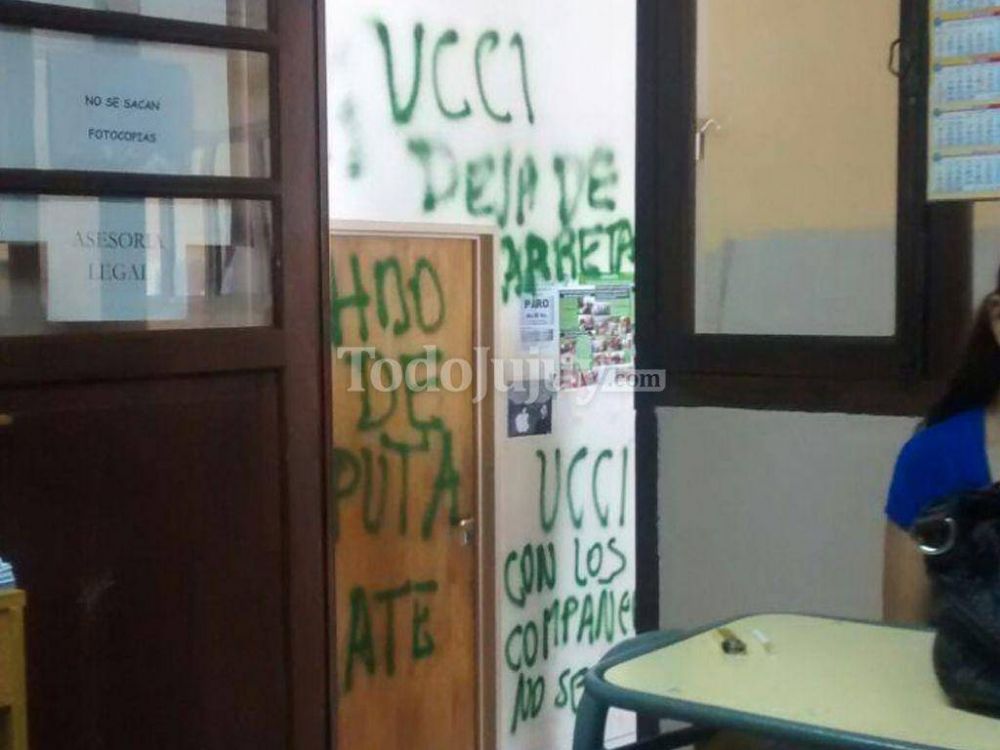 NO SE SACAN
FOTOCOPIAS
ASESORIA
LEGAL
UCCI
DEJA DE
ARRETA
HDO
DE
PUTA
ATE
PARO
TodoJujuy.com
UCCI
CON LOS
COMPAÑE
NO SE